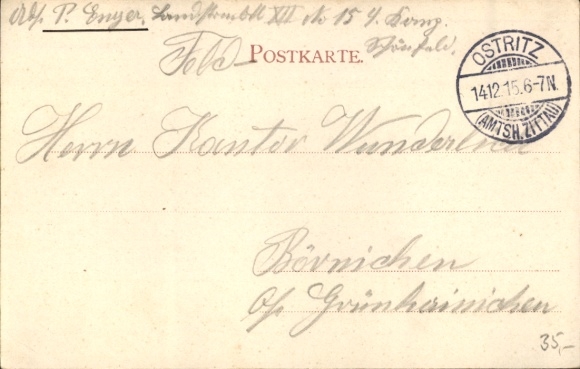 Abs. P. Enger, Landstrmbtl XII No 15 4. Komp.
Schönfeld.
Feld- POSTKARTE.
OSTRITZ
14.12.15.6-7N.
(AMTSH.ZITTAU)
Herrn Kantor Wunderlich
Börnichen
b/. Grünhainichen
35,-